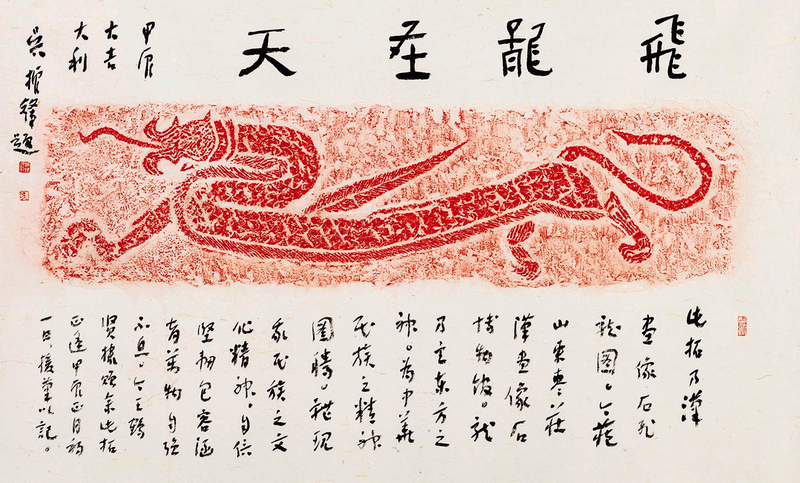 飛龍在天
甲辰
大吉
大利
吳振鋒題
此拓乃漢
畫像石飛
龍圖。今藏
山東棗莊
漢畫像石
博物館。龍
乃東方之
神。為中華
民族之精神
圖騰。體現
民族之文
化精神。自信
堅韌包容涵
育萬物自強
不息。今王
賢棣余此拓
正逢甲辰正月初
一日,援筆以記。